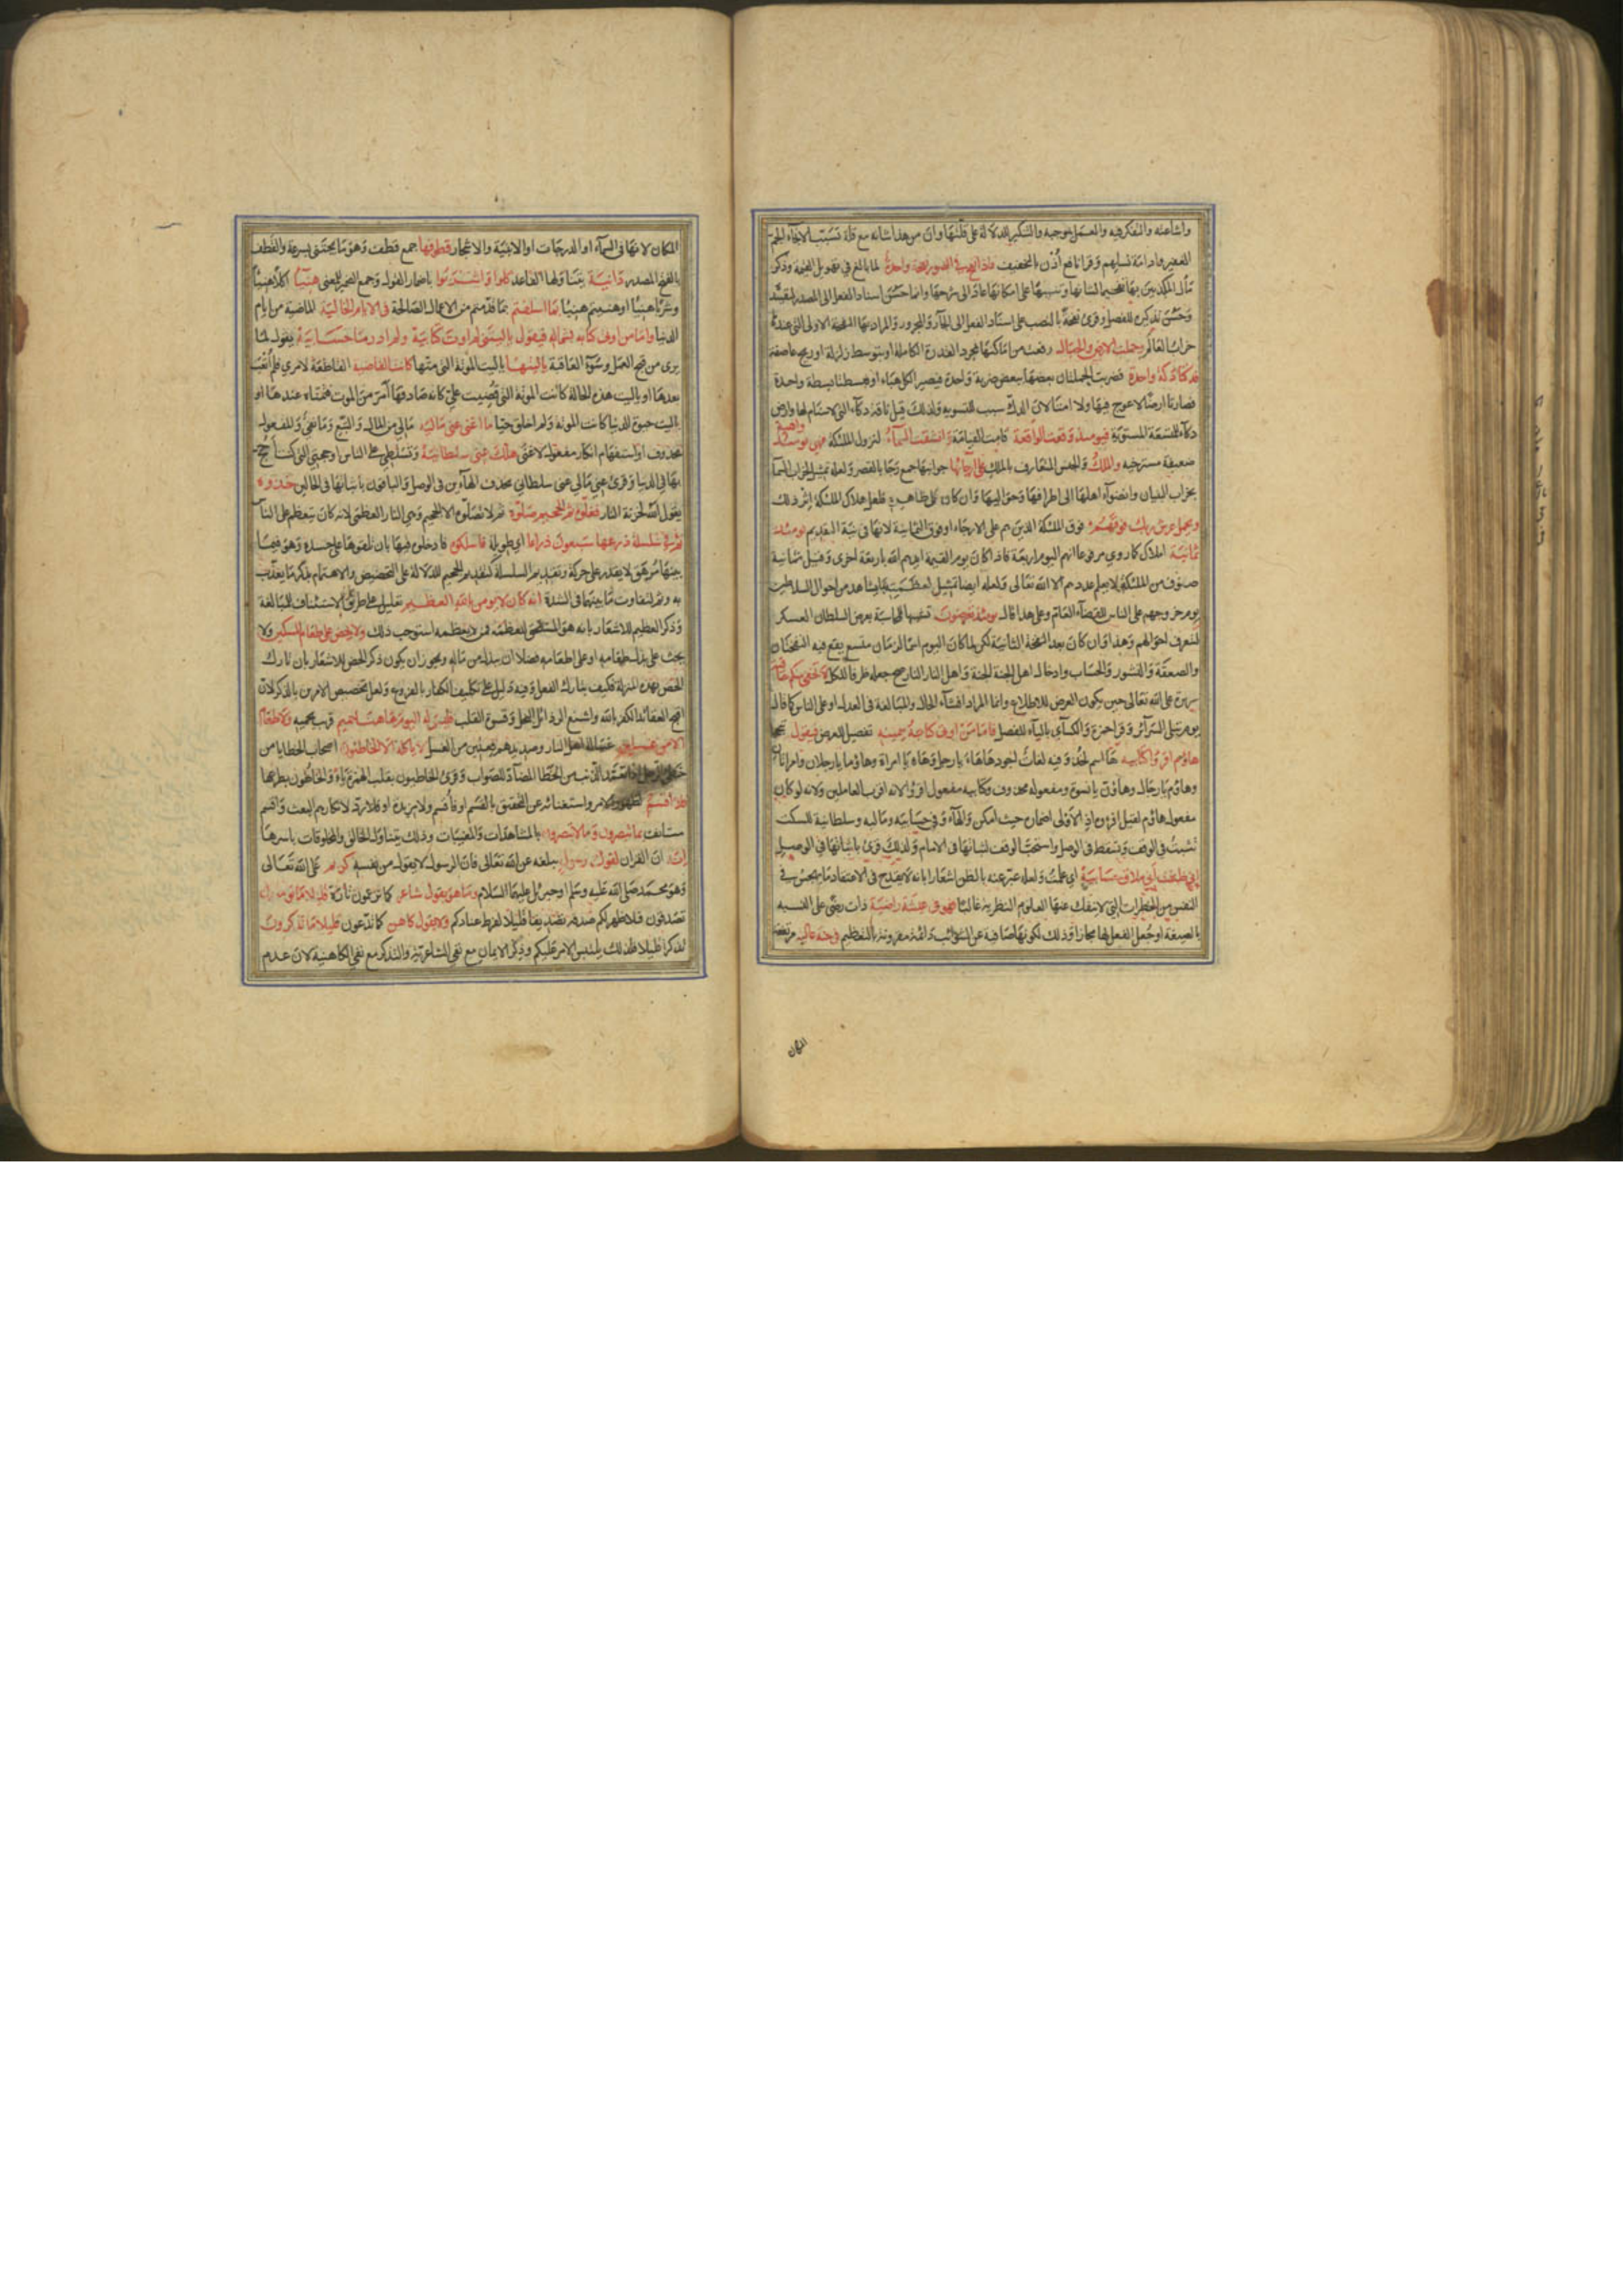 واشاعته والتفكر فيه والعمل بموجبه والتنكير للدلالة على قلتها وان من هذا شانه مع قلة تسبب لانجاء الجم
الغفير وادامة نسلهم وقرا نافع أذن بالتخفيف فاذا نفخ في الصور نفخة واحدة لما بالغ في تهويل القيمة وذكر
مآل المكذبين بها تفخيما لشانها وتنبيها على امكانها عاد الى شرحها وانما حسن اسناد الفعل الى المصدر لتقيده
وحسن تذكيره للفصل وقرئ نفخة بالنصب على اسناد الفعل الى الجار والمجرور والمراد بها النفخة الاولى التي عندها
خراب العالم وحملت الارض والجبال رفعت من اماكنها بمجرد القدرة الكاملة او بتوسط زلزلة او ريح عاصفة
فدكتا دكة واحدة فضربت الجملتان بعضها ببعض ضربة واحدة فيصير الكل هباء او فبسطتا بسطة واحدة
فصارتا ارضا لا عوج فيها ولا امتا لان الدك سبب للتسوية ولذلك قيل ناقة دكاء التي لا سنام لها وارض
دكاء للمتسعة المستوية فيومئذ وقعت الواقعة قامت القيامة وانشقت السماء لنزول الملئكة فهي يومئذ واهية
ضعيفة مسترخية والملك والجنس المتعارف بالملك على ارجائها جوانبها جمع رجا بالقصر ولعله تمثيل لخراب السماء
بخراب البنيان وانضواء اهلها الى اطرافها وحواليها وان كان على ظاهره فلعل هلاك الملئكة اثر ذلك
ويحمل عرش ربك فوقهم فوق الملئكة الذين هم على الارجاء او فوق الثمانية لانها في نية التقديم يومئذ
ثمانية املاك لما روي مرفوعا انهم اليوم اربعة فاذا كان يوم القيمة ايدهم الله باربعة اخرى وقيل ثمانية
صفوف من الملئكة لا يعلم عددهم الا الله تعالى ولعله ايضا تمثيل لعظمته بما يشاهد من احوال السلاطين
يوم خروجهم على الناس للقضاء العام وعلى هذا قال يومئذ تعرضون تشبيها للمحاسبة بعرض السلطان العسكر
لتعرف احوالهم وهذا وان كان بعد النفخة الثانية لكن لما كان اليوم اسما لزمان متسع يقع فيه النفختان
والصعقة والنشور والحساب وادخال اهل الجنة الجنة واهل النار النار صح جعله ظرفا للكل لا تخفى منكم خافية
سريرة على الله تعالى حتى يكون العرض للاطلاع وانما المراد افشاء الحال والمبالغة في العدل او على الناس كما قال
يوم تبلى السرائر وقرا حمزة والكسائي بالياء للفصل فاما من اوتي كتابه بيمينه تفصيل للعرض فيقول تبجحا
هاؤم اقرؤا كتابيه ها اسم لخذ وفيه لغات اجودها هاء يا رجل وهاء يا امراة وهاؤما يا رجلان وامراتان
وهاؤم يا رجال وهاؤن يا نسوة ومفعوله محذوف وكتابيه مفعول اقرؤا لانه اقرب العاملين ولانه لو كان
مفعول هاؤم لقيل اقرؤه اذ الاولى اضماره حيث امكن والهاء وفي حسابيه وماليه وسلطانيه للسكت
تثبت في الوقف وتسقط في الوصل واستحب الوقف لثباتها في الامام ولذلك قرئ باثباتها في الوصل
اني ظننت اني ملاق حسابيه اي علمت ولعله عبر عنه بالظن اشعارا بانه لا يقدح في الاعتقاد ما يهجس في
النفس من الخطرات التي لا تنفك عنها العلوم النظرية غالبا فهو في عيشة راضية ذات رضى على النسبة
بالصيغة او جعل الفعل لها مجازا وذلك لكونها صافية عن الشوائب دائمة مقرونة بالتعظيم في جنة عالية مرتفعة
المكان
المكان لانها في السماء او الدرجات او الابنية والاشجار قطوفها جمع قطف وهو ما يجتنى بسرعة والقطف
بالفتح المصدر دانية يتناولها القاعد كلوا واشربوا باضمار القول وجمع الضمير للمعنى هنيئا اكلا هنيئا
وشربا هنيئا او هنيتم هنيئا بما اسلفتم بما قدمتم من الاعمال الصالحة في الايام الخالية الماضية من ايام
الدنيا واما من اوتي كتابه بشماله فيقول يا ليتني لم اوت كتابيه ولم ادر ما حسابيه يقول لما
يرى من قبح العمل وسوء العاقبة يا ليتها يا ليت الموتة التي متها كانت القاضية القاطعة لامري فلم ابعث
بعدها او يا ليت هذه الحالة كانت الموتة التي قضيت علي كانه صادفها امر من الموت فتمناه عندها او
يا ليت حيوة الدنيا كانت الموتة ولم اخلق حيا ما اغنى عني ماليه مالي من المال والتبع وما نفي والمفعول
محذوف او استفهام انكار مفعول لاغنى هلك عني سلطانيه وتسلطي على الناس او حجتي التي كنت احتج
بها في الدنيا وقرئ عني مالي عني سلطاني بحذف الهاءين في الوصل والباقون باثباتها في الحالين خذوه
يقول الله لخزنة النار فغلوه ثم الجحيم صلوه ثم لا تصلوه الا الجحيم وهي النار العظمى لانه كان يتعظم على الناس
ثم في سلسلة ذرعها سبعون ذراعا اي طويلة فاسلكوه فادخلوه فيها بان تلفوها على جسده وهو فيما
بينها مرهق لا يقدر على حركة وتقديم السلسلة كتقديم الجحيم للدلالة على التخصيص والاهتمام بذكر ما يعذب
به وثم لتفاوت ما بينهما في الشدة انه كان لا يؤمن بالله العظيم تعليل على طريق الاستئناف للمبالغة
وذكر العظيم للاشعار بانه هو المستحق للعظمة فمن لا يعظمه استوجب ذلك ولا يحض على طعام المسكين ولا
يحث على بذل طعامه او على اطعامه فضلا ان يبذل من ماله ويجوز ان يكون ذكر الحض للاشعار بان تارك
الحض بهذه المنزلة فكيف بتارك الفعل وفيه دليل على تكليف الكفار بالفروع ولعل تخصيص الامرين بالذكر لان
اقبح العقائد الكفر بالله واشنع الرذائل البخل وقسوة القلب فليس له اليوم ههنا حميم قريب يحميه ولا طعام
الا من غسلين غسالة اهل النار وصديدهم فعلين من الغسل لا ياكله الا الخاطئون اصحاب الخطايا من
خطئ الرجل اذا تعمد الذنب من الخطا المضاد للصواب وقرئ الخاطيون بقلب الهمزة ياء والخاطون بطرحها
فلا اقسم لظهور الامر واستغنائه عن التحقيق بالقسم او فاقسم ولا مزيدة او فلا رد لانكارهم البعث واقسم
مستانف بما تبصرون وما لا تبصرون بالمشاهدات والمغيبات وذلك يتناول الخالق والمخلوقات باسرها
انه ان القران لقول رسول يبلغه عن الله تعالى فان الرسول لا يقول من نفسه كريم على الله تعالى
وهو محمد صلى الله عليه وسلم او جبرئل عليهما السلام وما هو بقول شاعر كما تزعمون تارة قليلا ما تؤمنون
تصدقون فلما ظهر لكم صدقه تصديقا قليلا لفرط عنادكم ولا بقول كاهن كما تدعون قليلا ما تذكرون
تذكرا قليلا فلذلك يلتبس الامر عليكم وذكر الايمان مع نفي الشاعرية والتذكر مع نفي الكاهنية لان عدم